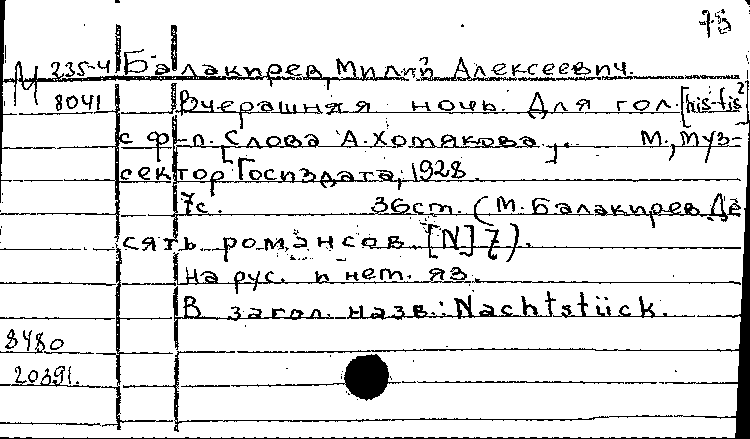 75
М 235-4 Балакирев, Милий Алексеевич.
8041 Вчерашняя ночь. Для гол. [his-fis²]
с ф-п. [Слова А. Хомякова]. М., Муз-
сектор Госиздата, 1928.
7с. 36 cm. (М. Балакирев. Де-
сять романсов. [N] 7).
на рус. и нем. яз.
В загол. назв.: Nachtstück.
8480
20391.